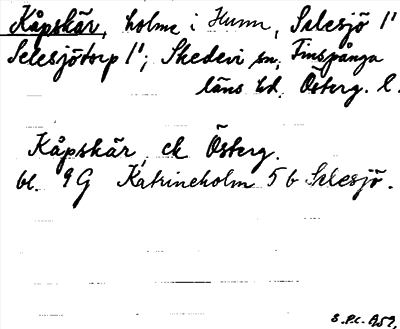 Kåpskär, holme i Hunn, Selesjö 1'
Selesjötorp 1'; Skedevi sn, Finspånga
läns hd, Österg. l.
Kåpskär, ek Österg.
bl. 9G Katrineholm 5 b Selesjö.
S.P.C. 1952.